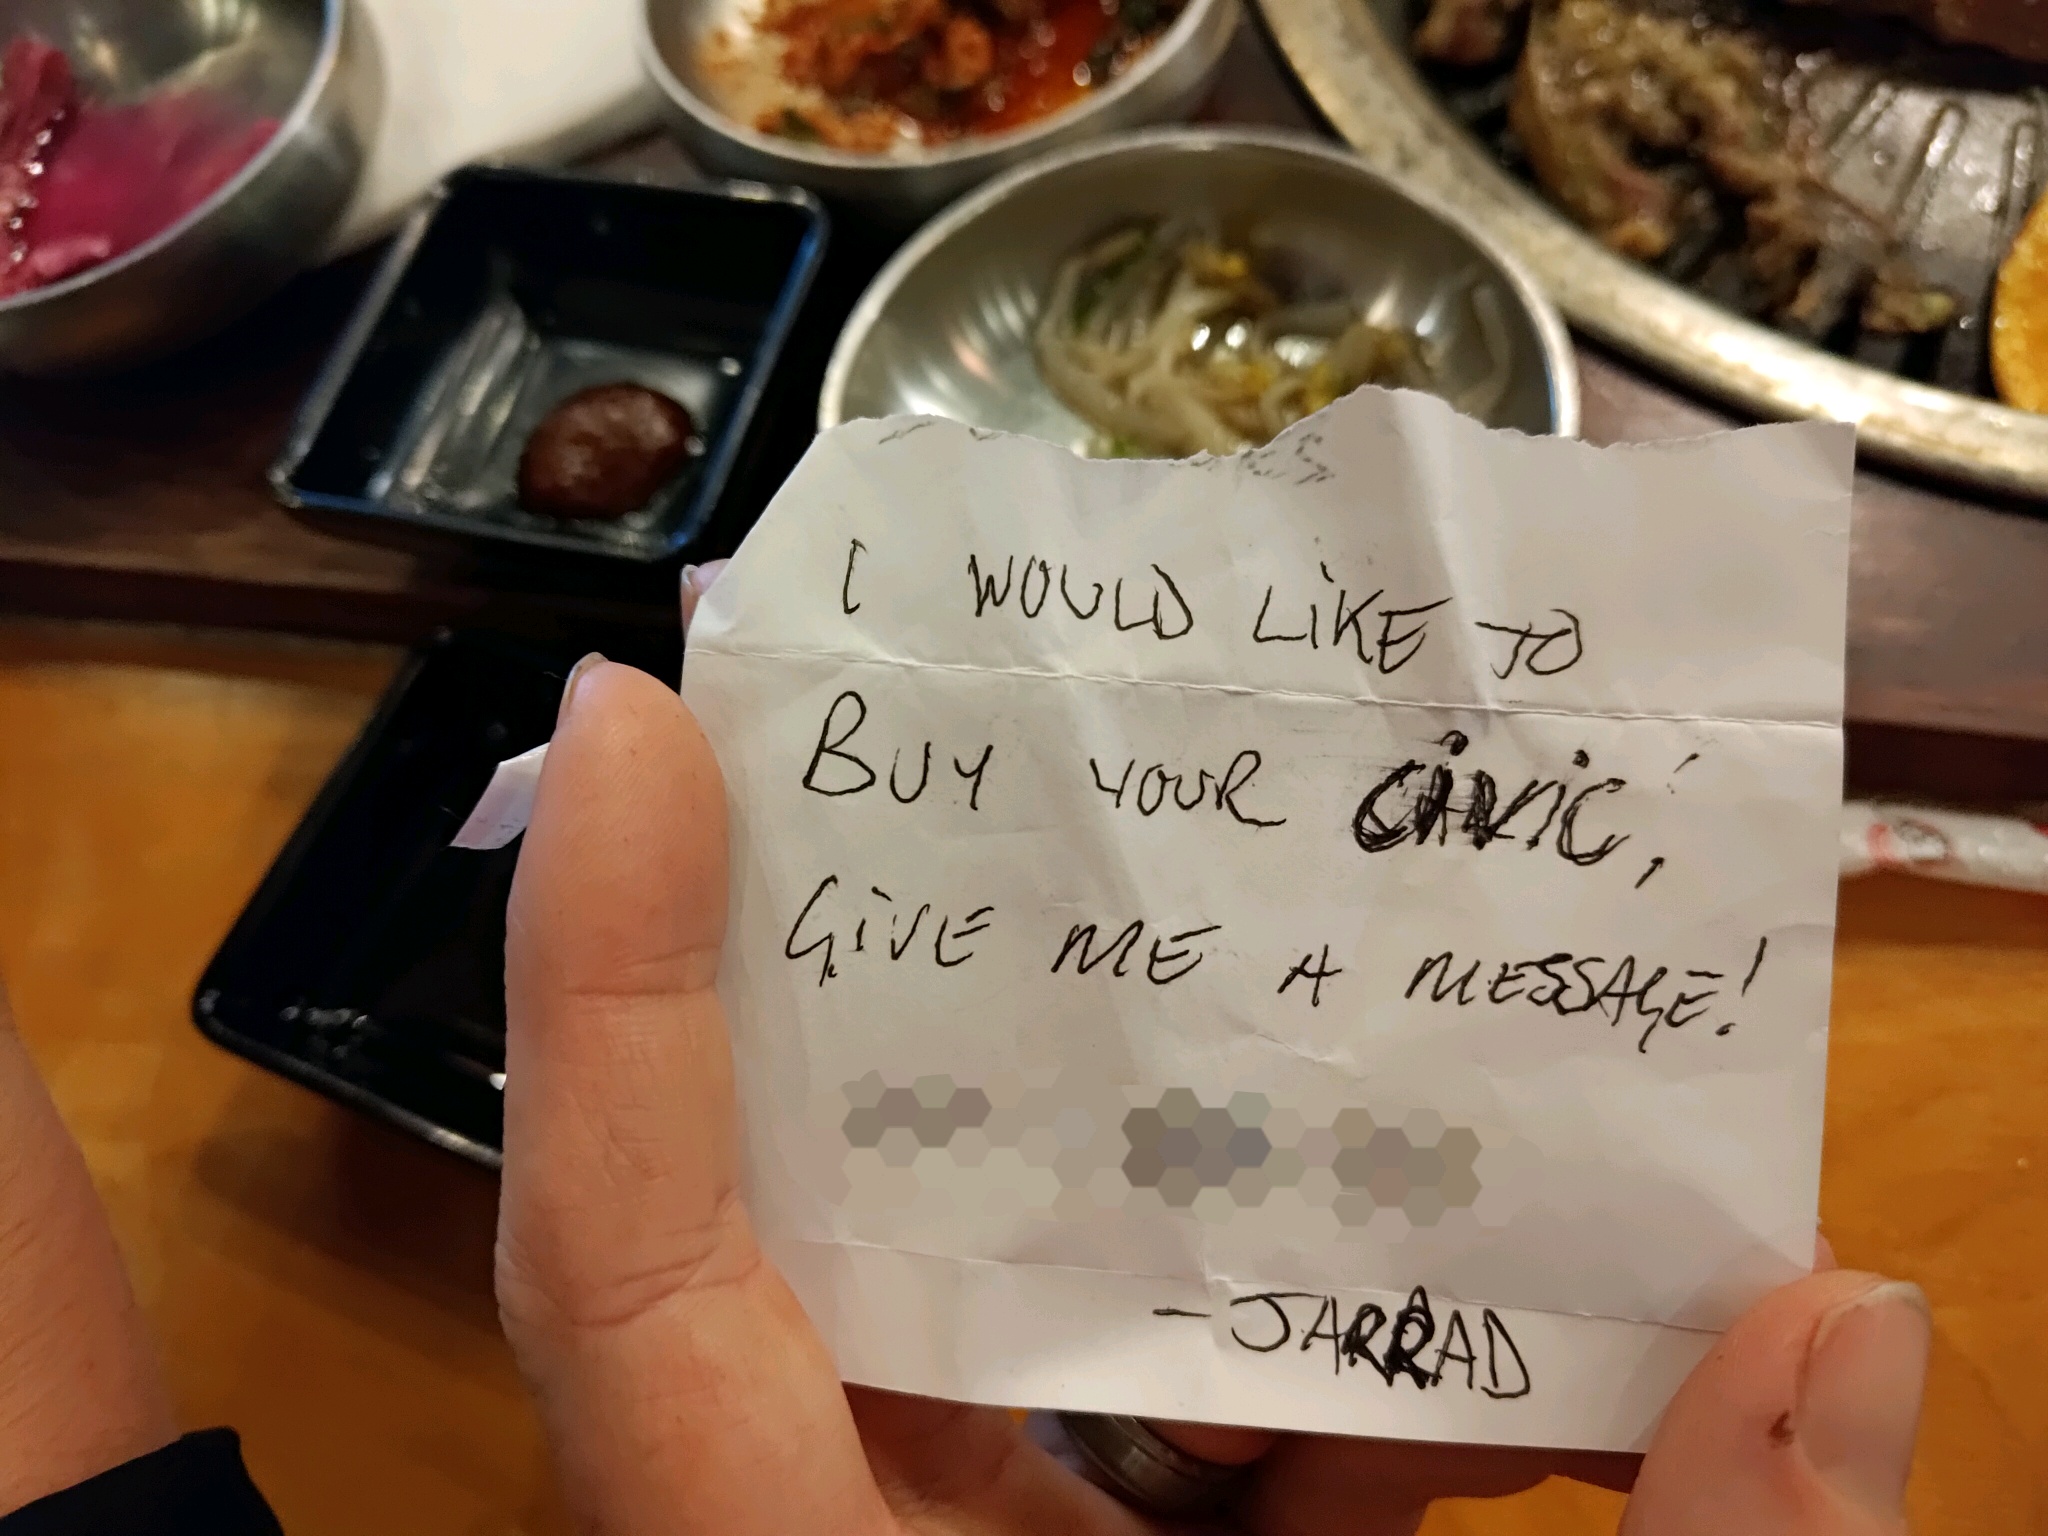 I WOULD LIKE TO
BUY YOUR CIVIC,
GIVE ME A MESSAGE!
-JARRAD